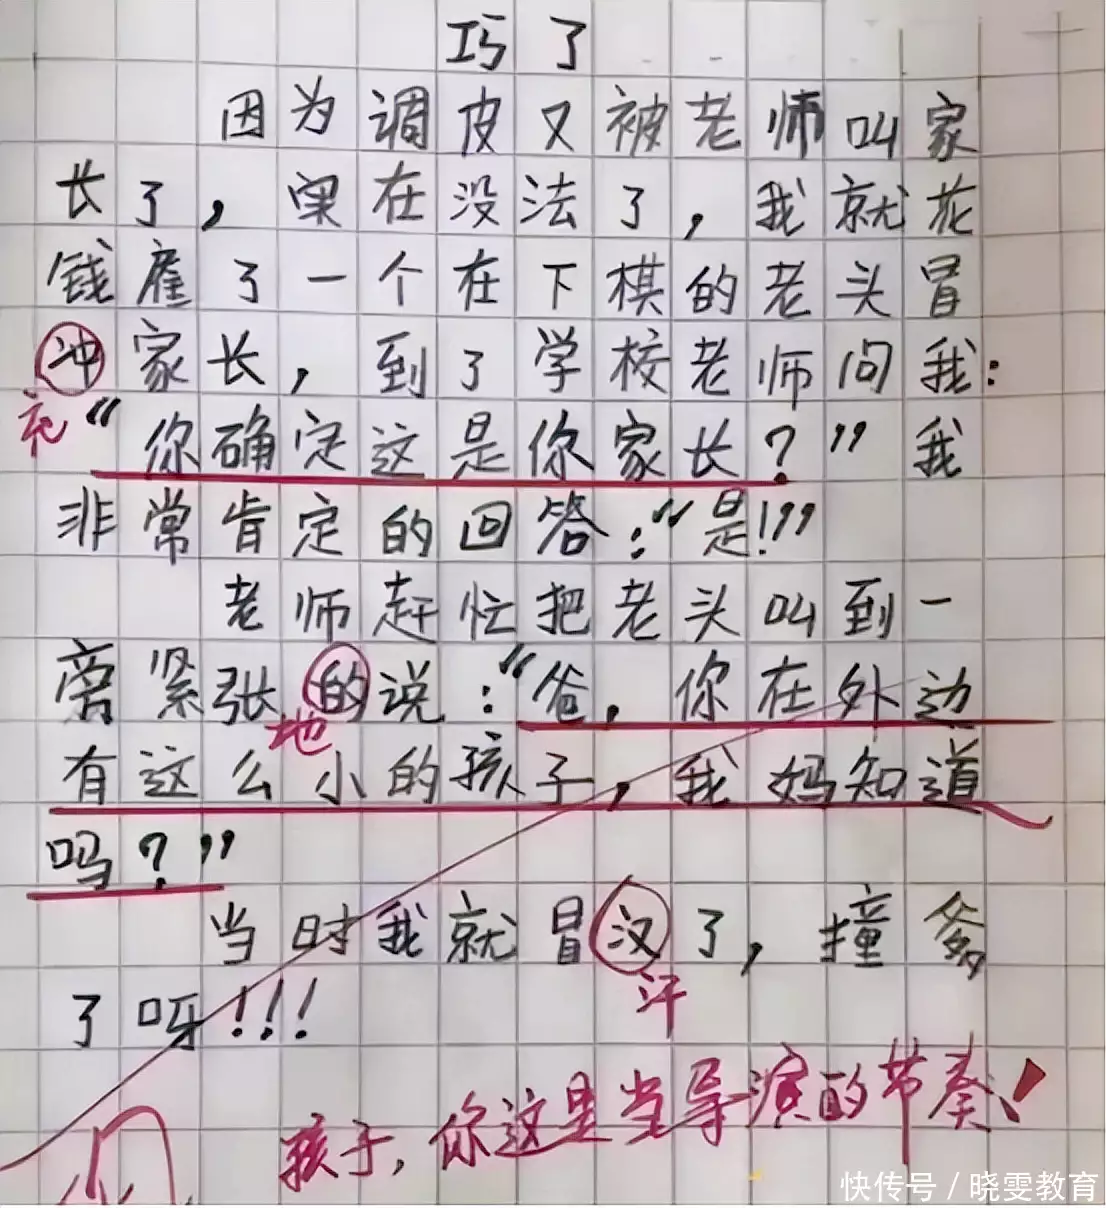 巧了
因为调皮又被老师叫家
长了，实在没法了，我就花
钱雇了一个在下棋的老头冒
冲家长，到了学校老师问我：
充
“你确定这是你家长？”我
非常肯定的回答：“是！”
老师赶忙把老头叫到一
旁紧张的说：“爸，你在外边
地
有这么小的孩子，我妈知道
吗？”
当时我就冒汉了，撞爹
汗
了呀！！！
孩子，你这是当导演的节奏！
快传号／晓雯教育